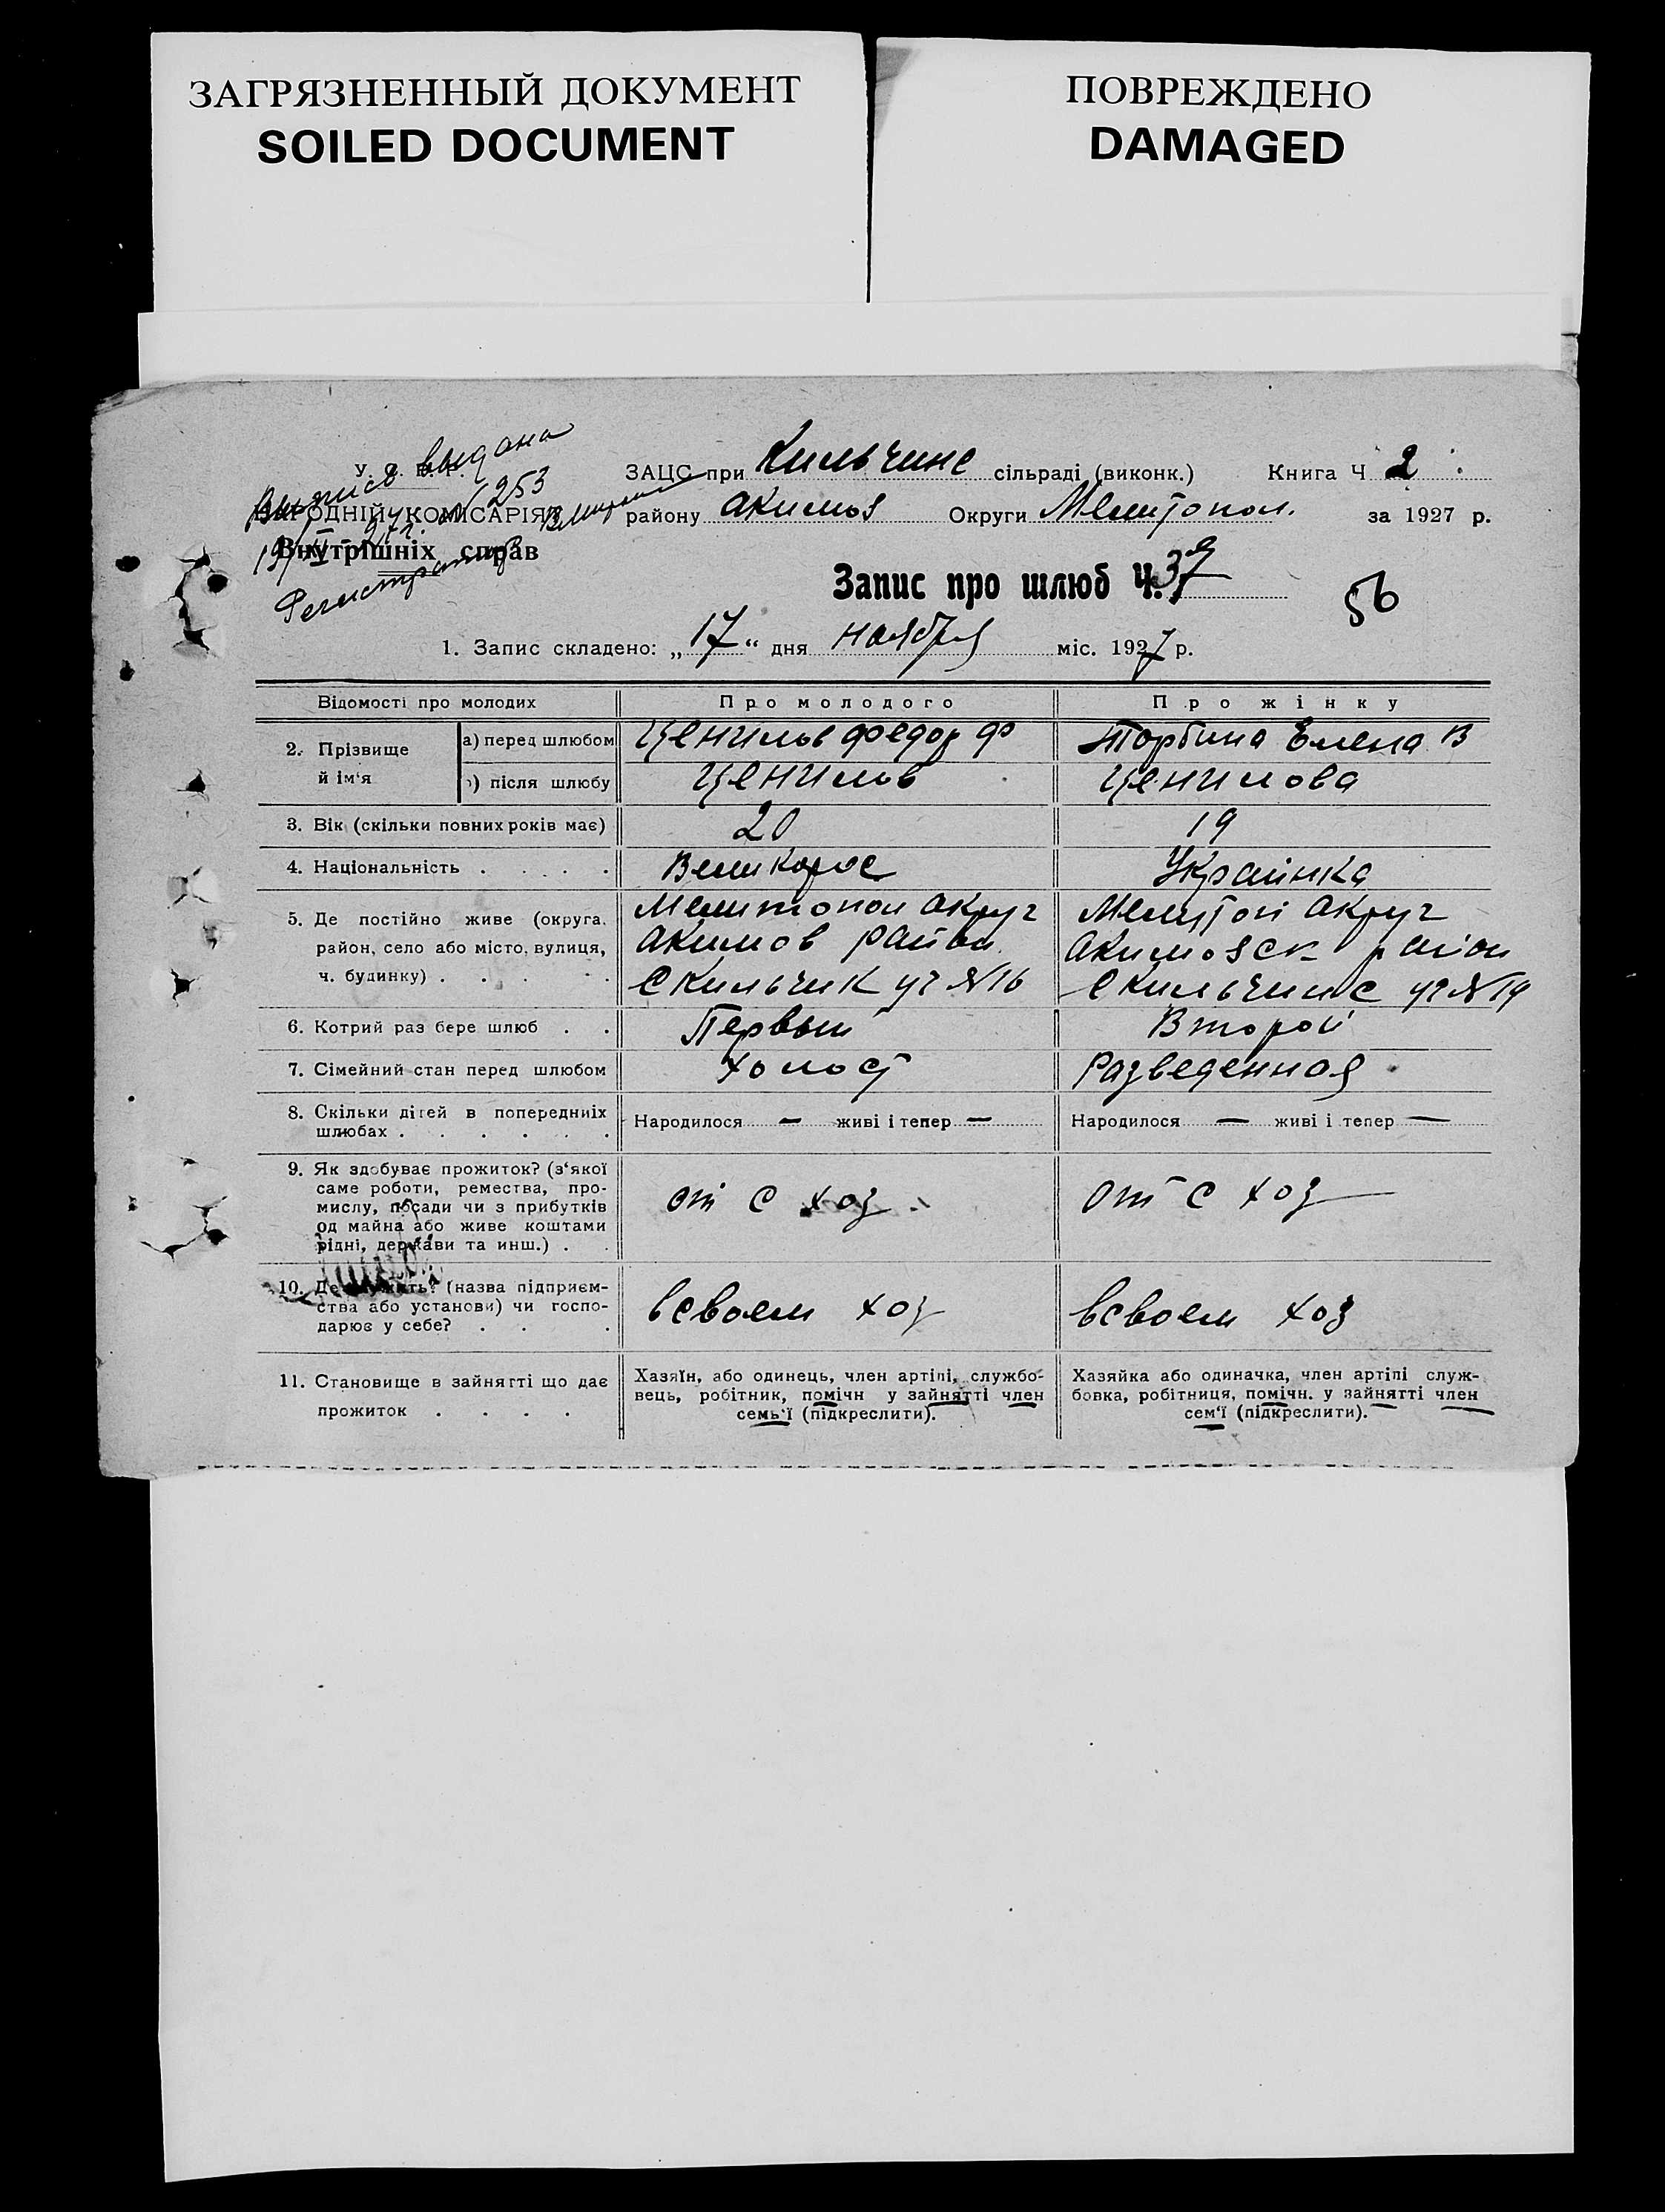 ЗАГРЯЗНЕННЫЙ ДОКУМЕНТ
SOILED DOCUMENT
ПОВРЕЖДЕНО
DAMAGED
Выпись выдана
19/XI-27г. № 253
Регистратор
У. С. Р. Р.
НАРОДНІЙ КОМІСАРІЯТ
Внутрішніх справ
ЗАЦС при Кильчинс сільраді (виконк.) Книга Ч 2
району Акимов Округи Мелитопол. за 1927 р.
Запис про шлюб Ч. 39
56
1. Запис складено: „17“ дня ноября міс. 1927 р.
Відомості про молодих
Про молодого
Про жінку
2. Прізвище й ім‘я
а) перед шлюбом
Ценилов Федор Ф
Торбина Елена В
б) після шлюбу
Ценилов
Ценилова
3. Вік (скільки повних років має)
20
19
4. Національність . . . . .
Великорос
Украинка
5. Де постійно живе (округа,
район, село або місто, вулиця,
ч. будинку) . . . .
Мелитопол Акруг
Акимов район
С Кильчик уч №16
Мелитоп Акруг
Акимовск район
С Кильчинс уч №14
6. Котрий раз бере шлюб . .
Первый
Второй
7. Сімейний стан перед шлюбом
Холост
Разведенная
8. Скільки дітей в попередниіх
шлюбах . . . . . .
Народилося — живі і тепер —
Народилося — живі і тепер —
9. Як здобуває прожиток? (з‘якої
саме роботи, ремества, про-
мислу, посади чи з прибутків
од майна або живе коштами
рідні, держави та инш.) . .
от С хоз
от С хоз
10. Де служить? (назва підприєм-
ства або установи) чи госпо-
дарює у себе? . . .
всвоем хоз
всвоем хоз
11. Становище в зайнятті що дає
прожиток . . . .
Хазяїн, або одинець, член артілі, службо-
вець, робітник, помічн у зайнятті член
семь‘ї (підкреслити).
Хазяйка або одиначка, член артілі служ-
бовка, робітниця, помічн. у зайнятті член
сем‘ї (підкреслити).